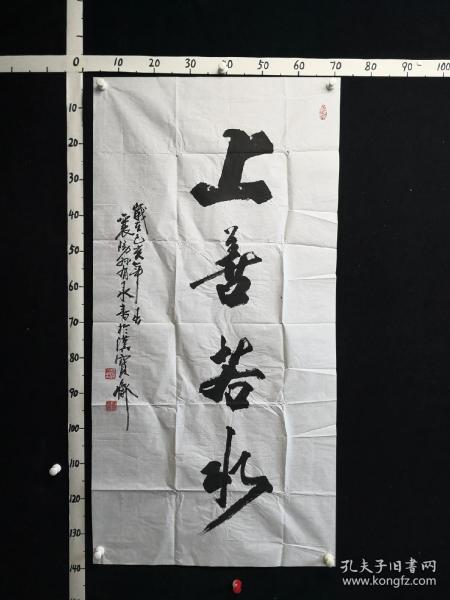 上善若水
歲在己亥年春
襄陽 永書於漢寶齋
5 10 20 30 40 50 60 70 80 90 100
10
20
30
40
50
60
70
80
90
100
110
120
130
140
孔夫子旧书网
www.kongfz.com